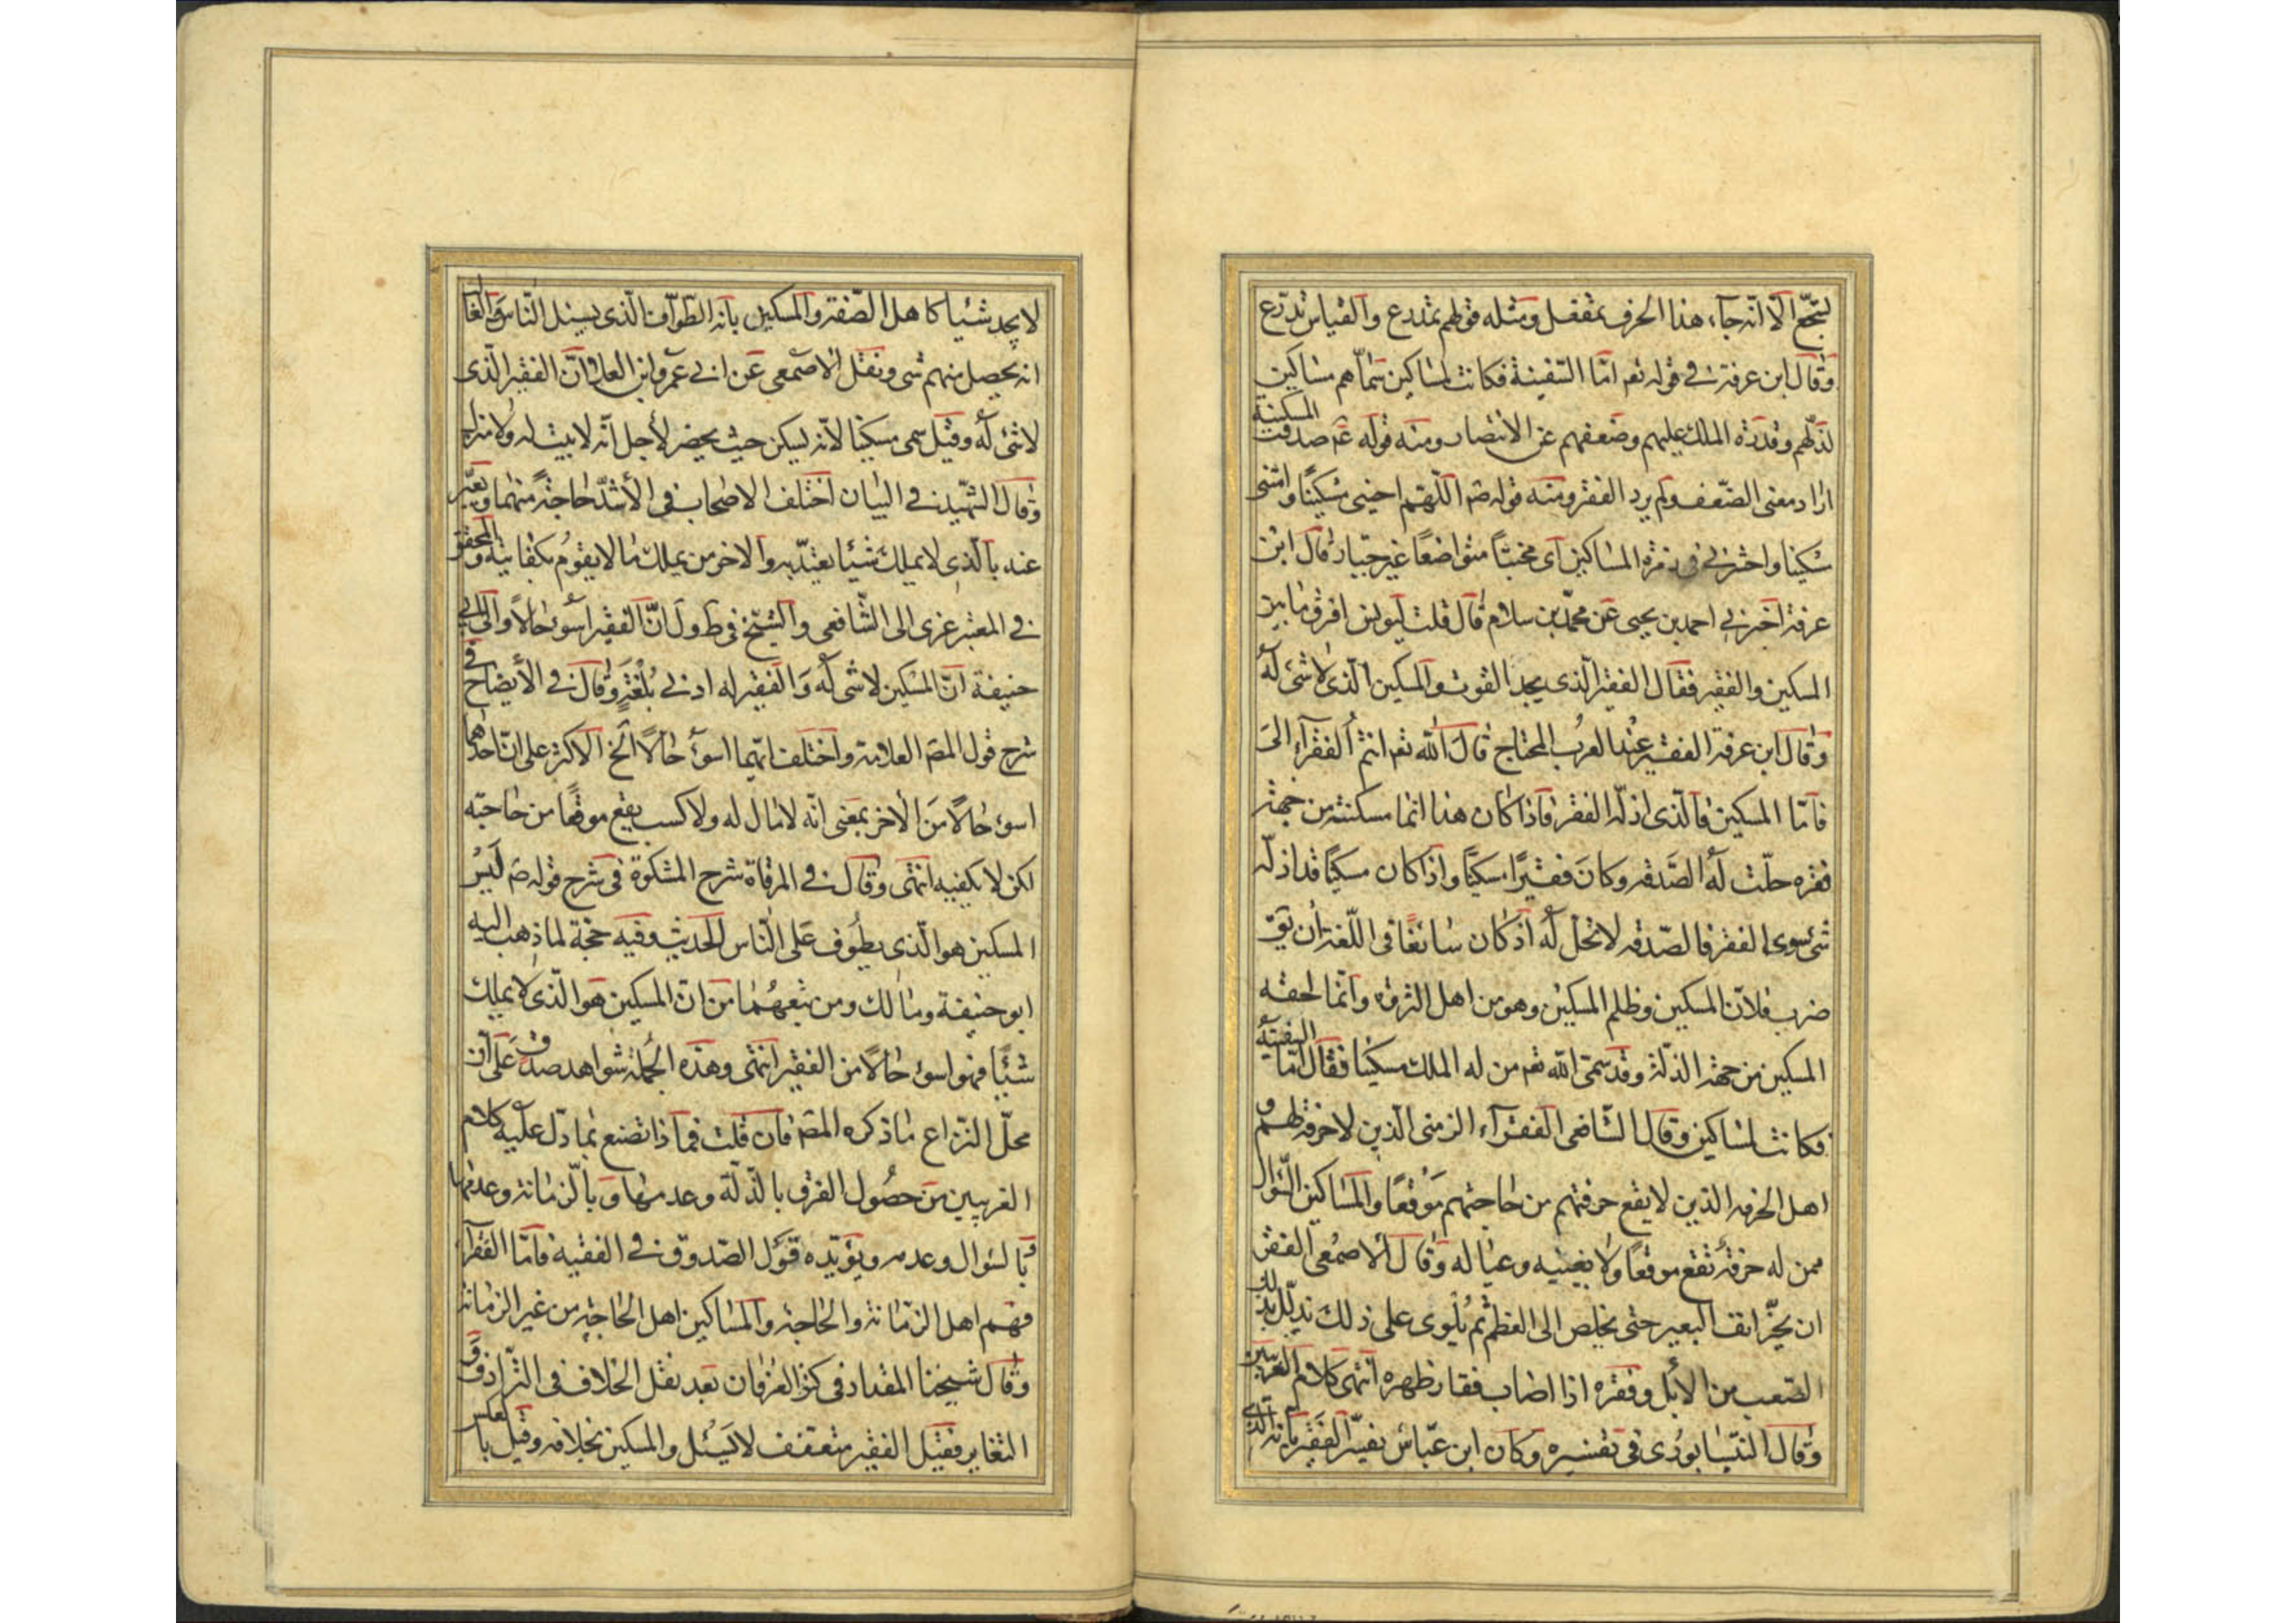 لتجّع الّا انّه جآء هذا الحرف بمفعل ومثله قولهم تمدرع والقياس تدرّع
وقال ابن عرفة في قوله تعم امّا السّفينة فكانت لمساكين سمّاهم مساكين
لذلّهم وقدرة الملك عليهم وضعفهم عن الانتصار ومنه قوله عم صدقت المسكينة
اراد معنى الضّعف ولم يرد الفقر ومنه قوله صم اللّهم احيني مسكينًا وامتنى
مسكينا واحشرني في زمرة المساكين اى مخبتًا متواضعًا غير جبّار وقال ابن
عرفة اخبرني احمد بن يحيى عن محمّد بن سلام قال قلت ليونس افرق ما بين
المسكين والفقير فقال الفقير الّذى يجد القوت والمسكين الّذى لا شئ له
وقال ابن عرفة الفقير عند العرب المحتاج قال الله تعم انتم الفقرآء الى
فامّا المسكين فالّذى اذلّه الفقر فاذا كان هذا انما مسكنته من جهة
فقره حلّت له الصّدقه وكان فقيرًا مسكينًا واذا كان مسكينًا قد اذلّه
شئ سوى الفقر فالصّدقه لا تحل له اذ كان سائغًا فى اللّغة ان يقو
ضرب فلان المسكين وظلم المسكين وهو من اهل الثروة وانّما لحقه
المسكين من جهة الذلّة وقد سمّى الله تعم من له الملك مسكينًا فقال امّا السفينة
فكانت لمساكين وقال الشّافعى الفقرآء الزمنى الّذين لا حرفة لهم و
اهل الحرفه الذين لا يقع حرفتهم من حاجتهم موقعًا والمساكين السّؤال
ممن له حرفة تقع موقعًا ولا يغنيه وعياله وقال الاصمعى الفقر
ان يحزّ انف البعير حتى يخلص الى العظم ثم يلوى على ذلك يذلّل به
الصّعب من الابل وفقره اذا اصاب فقار ظهره انتهى كلام الغريبين
وقال النّيسابورى فى تفسيره وكان ابن عبّاس يفسّر الفقير بانه الّذى
لا يجد شيئا كاهل الصّفة والمسكين بانه الطوّاف الّذى يسئل النّاس والغا
انه يحصل منهم شئ ونقل الاصمعى عن ابي عمرو ابن العلا انّ الفقير الّذى
لا شئ له وقيل سمى مسكينا لانّه يسكن حيث يحضر لأجل انّه لا بيت له ولا منزل
وقال الشّهيد في البيان اختلف الاصحاب فى الأشدّ حاجة منهما ويعبّر
عنه بالّذى لا يملك شيئا يعتدّ به والاخر من يملك ما لا يقوم بكفايته والمحقق
في المعتبر عزى الى الشّافعى والشّيخ فى ط ول انّ الفقير اسوء حالًا والى ابي
حنيفة انّ المسكين لا شئ له والفقير له ادنى بلغة وقال في الأيضاح في
شرح قول المصم العلامة واختلف ايّهما اسوء حالًا الخ الاكثر على ان احدهما
اسوء حالًا من الآخر بمعنى انّه لا مال له ولا كسب يقع موقعًا من حاجته
لكن لا يكفيه انتهى وقال في المرقاة شرح المشكوة فى شرح قوله صم ليس
المسكين هو الّذى يطوف على النّاس الحديث وفيه حجّة لما ذهب اليه
ابو حنيفة ومالك ومن تبعهما من ان المسكين هو الّذى لا يملك
شيئًا فهو اسوء حالًا من الفقير انتهى وهذه الجملة شواهد صدق على ان
محلّ النّزاع ما ذكره المصم فان قلت فما ذا تصنع بما دلّ عليه كلام
الغريبين من حصول الفرق بالذّلة وعدمها وبالزمانة وعدمها
وبالسّؤال وعدمه ويؤيّده قول الصّدوق في الفقيه فامّا الفقرآء
فهم اهل الزّمانة والحاجة والمساكين اهل الحاجة من غير الزمانة
وقال شيخنا المقداد فى كنز العرفان بعد نقل الخلاف فى التّرادف و
التغاير فقيل الفقير متعفف لا يسئل والمسكين بخلافه وقيل بالعكس